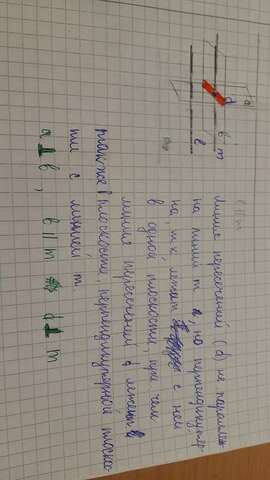 a
d
b m
c
Линия пересечений (d) не паралель
на линии m, но перпендикуляр
на, т.к лежит с ней
в одной плоскости, при чем
линия пересечения d лежит в
также в плоскости, перпендикулярной плоскос
ти с линией m.
a ⊥ b, b || m d ⊥ m